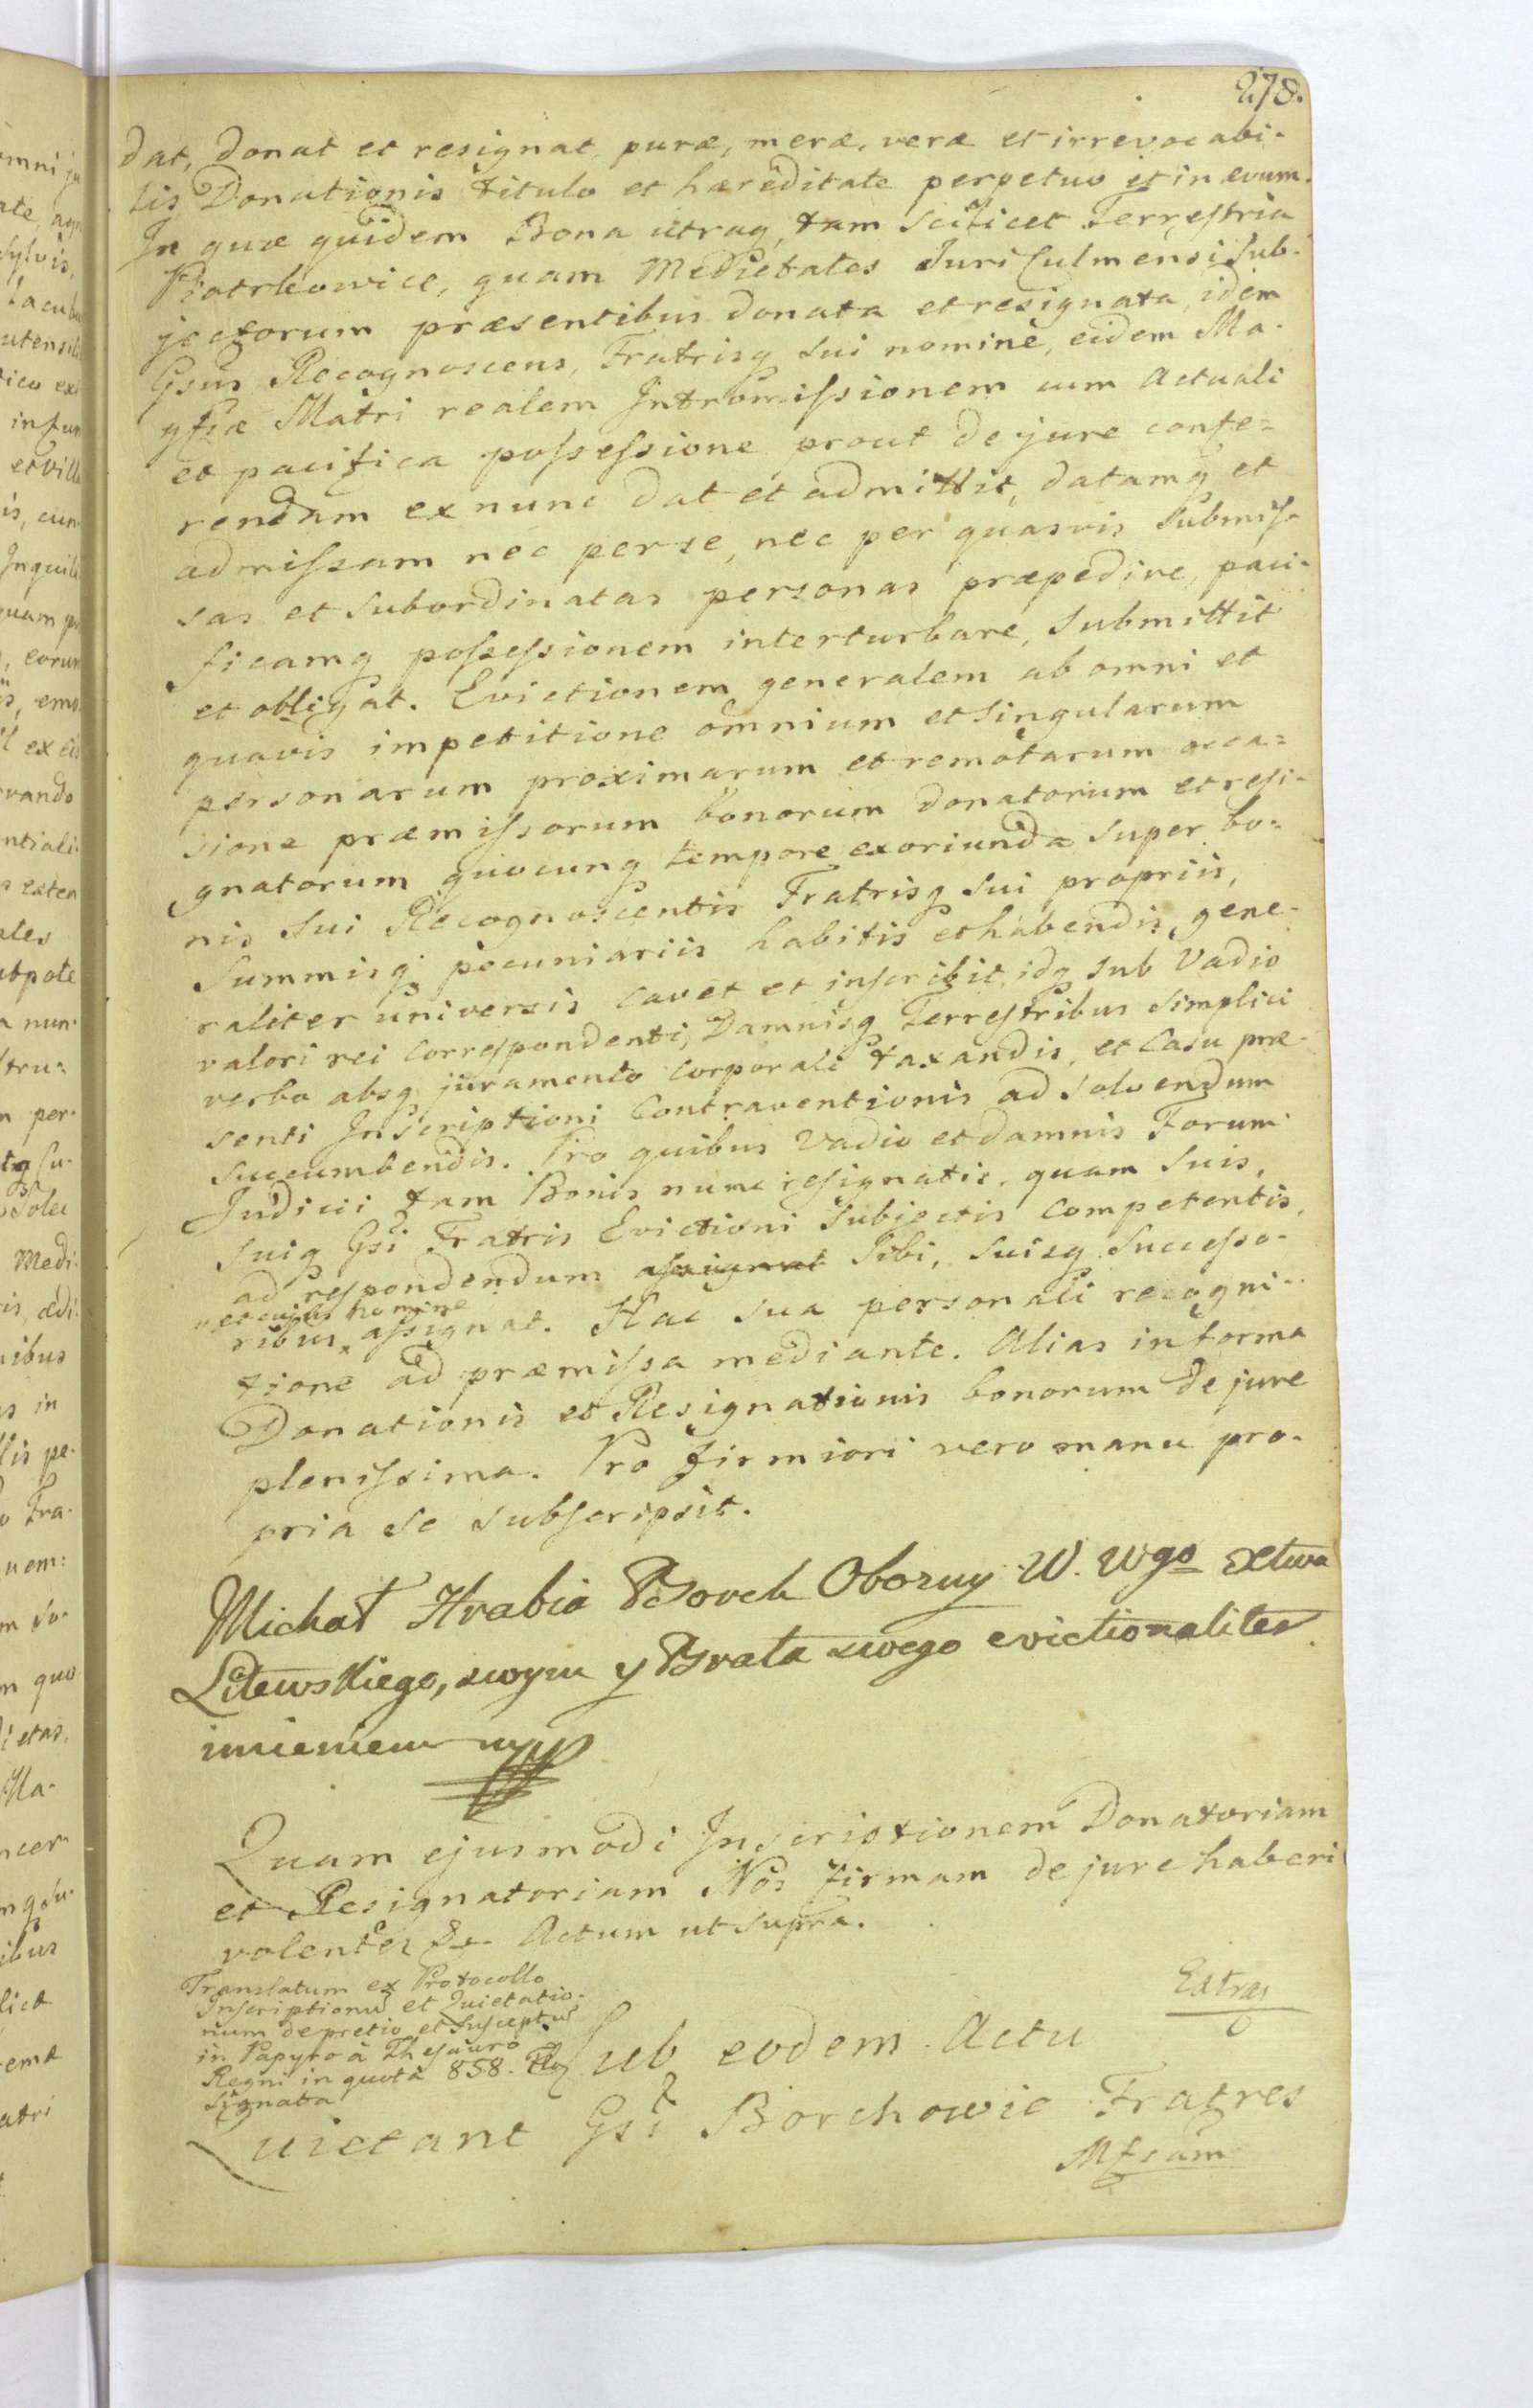 278.
dat, donat et resignat, puræ, meræ, veræ et irrevocabi-
lis Donationis titulo et hæreditate perpetuo et in ævum.
In quæ quidem Bona utraq, tam scilicet Terrestria
Piotrkowice, quam Medietates Juri Culmensi sub-
jectorum præsentibus donata et resignata, idem
Gsus Recognoscens, Fratrisq sui nomine, eidem Ma-
gfcæ Matri realem Intromissionem cum actuali
et pacifica possessione prout de jure confe=
rendam ex nunc dat et admittit, datamq et
admissam nec per se, nec per quasvis submis-
sas et subordinatas personas præpedire, paci-
ficamq possessionem interturbare, submittit
et obligat. Evictionem generalem ab omni et
quavis impetitione omnium et singularum
personarum proximarum et remotarum occa=
sione præmissorum bonorum donatorum et resi-
gnatorum quocunq tempore exoriunda super bo=
nis sui Recognoscentis Fratrisq sui propriis,
Summisq pecuniariis habitis et habendis, gene-
raliter universis cavet et inscribit, idq sub Vadio
valori rei correspondenti, Damnisq Terrestribus simplici
verbo absq juramento corporali taxandis, et Casu præ-
senti Inscriptioni Contraventionis ad solvendum
succumbendis. Pro quibus Vadio et damnis Forum
Judicii tam Bonis nunc resignatis, quam suis,
suiq Gsi Fratris Evictioni subjectis competentis,
ad respondendum assignat sibi, suisq successo-
et cujus nomine
ribus assignat. Hac sua personali recogni-
tione ad præmissa mediante. Alias in forma
Donationis et Resignationis bonorum de jure
plenissima. Pro firmiori vero manu pro-
pria se subscripsit.
Michał Hrabia Borch Oboźny W. Wgo Xtwa
Litewskiego, swym y Brata swego evictionaliter
imieniem mpp
Quam ejusmodi Inscriptionem Donatoriam
et Resignatoriam Nos firmam de jure haberi
volentes &c. Actum ut supra.
Translatum ex Protocollo
Inscriptionū et Quietatio-
num de pretio et susceptū
in Papyro à Thesauro
Regni in quota 858.
signata
Sub eodem Actu
Extras
Quietant Gsi Borchowie Fratres
Mfcam